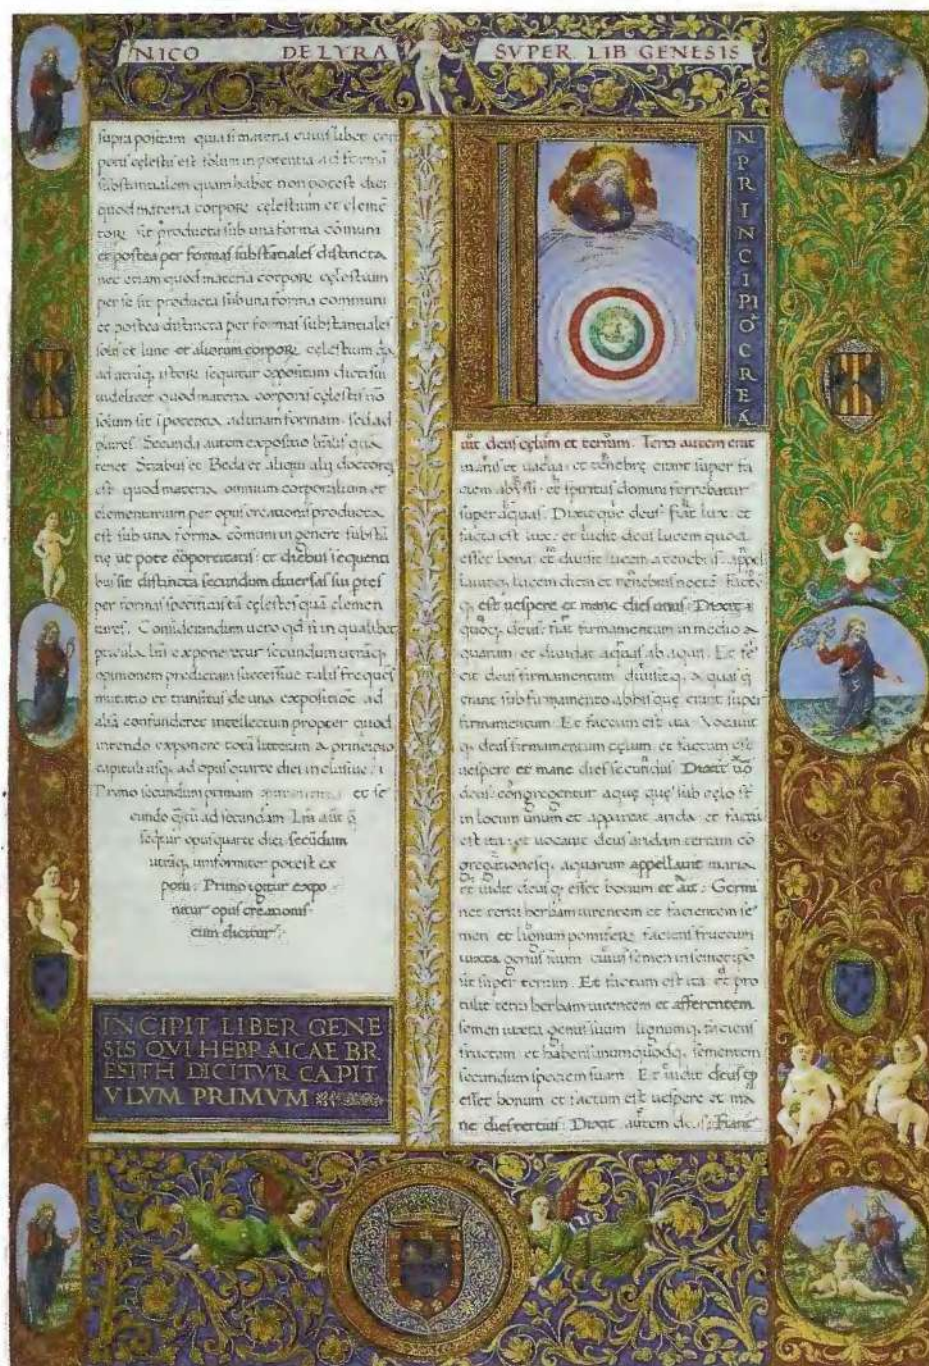 NICO DE LYRA SVPER LIB GENESIS
supra positam quia si materia cuius libet cor
poris celestis est solum in potentia ad formā
substantialem quam habet non potest dici
quod materia corpore celestium et eleme
tore sit producta sub una forma cōmuni
et postea per formas substātiales distincta
nec etiam quod materia corpore celestium
per se sit producta sub una forma communi
et postea distincta per formas substantiales
solis et lune et aliorum corpore celestium
ad utrāq. istore sequitur oppositum dicti sui
videlicet quod materia corporis celestis nō
solum sit i potentia ad unam formam sed ad
plures. Secunda autem expositio quā
tenet Strabus et Beda et aliqui alij doctores
est quod materia omnium corporalium et
elementarium per opus creationis producta
est sub una forma comuni in genere substā
tie ut pote cōporeitatis et diebus sequenti
bus sit distincta secundum diversas sui ptes
per formas specificas tā celestes quā elemen
tares. Considerandum vero qd si in qualibet
pticula lr̄e exponeretur secundum utrāq.
opinionem predictam successive talis frequēs
mutatio et transitus de una expositione ad
aliā confunderet intellectum propter quod
intendo exponere totā litteram a principio
capituli usq. ad opus quarte diei inclusive
Primo secundum primam et se
cundo secundam
seq̄tur opus quarte diei secūdum
utrāq. uniformiter potest ex
poni. Primo igitur expo
nitur opus creationis
cum dicitur
INCIPIT LIBER GENE
SIS QVI HEBRAICAE BR
ESITH DICITVR CAPIT
VLVM PRIMVM
N PRINCIPIŌ CREĀ
uit deus celum et terram. Terra autem erat
inanis et vacua et tenebre erant super fa
ciem abyssi et spiritus domini ferrebatur
super aquas. Dixitque deus fiat lux et
facta est lux et vidit deus lucem quod
esset bona et divisit lucem a tenebris appel
lavitq. lucem diem et tenebras noctē Factū
q. est vespere et mane dies unus. Dixit
quoq. deus fiat firmamentum in medio a
quarum et dividat aquas ab aquis. Et fe
cit deus firmamentum divisitq. aquas q̄
erant sub firmamento ab his que erant super
firmamentum. Et factum est ita Vocavit
q. deus firmamentum celum et factum est
vespere et mane dies secundus Dixit vō
deus congregentur aque que sub celo st
in locum unum et appareat arida et factū
est ita et vocavit deus aridam terram cō
gregationesq. aquarum appellavit maria
et vidit deus q̄ esset bonum et ait Germi
net terra herbam virentem et facientem se
men et lignum pomifere faciens fructum
iuxta genus suum cuius semen in semet ipō
sit super terram. Et factum est ita et pro
tulit terra herbam virentem et afferentem
semen iuxta genus suum lignumq. faciens
fructum et habens unumquodq. sementem
secundum speciem suam. Et vidit deus q̄
esset bonum et factum est vespere et ma
ne dies tertius Dixit autem deus Fiant